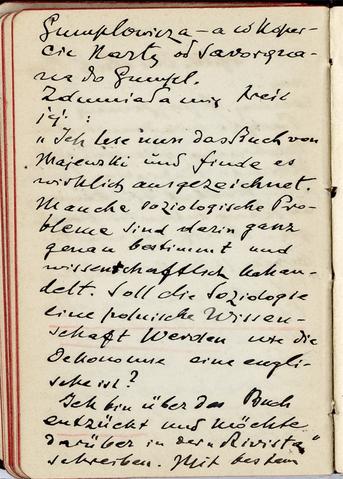 Gumplowicza – a w koper-
cie kartę od Savorgna-
na do Gumpl.
Zdumiała mię treść
jej :
„Ich lese nun das Buch von
Majewski und finde es
wirklich ausgezeichnet.
Manche soziologische Pro-
bleme sind darin ganz
genau bestimmt und
wissenschaftlich behan-
delt. Soll die Soziologie
eine polnische Wissen-
schaft werden wie die
Oekonomie eine engli-
sche ist?
Ich bin über das Buch
entzückt und möchte
darüber in der „Rivista"
schreiben. Mit bestem